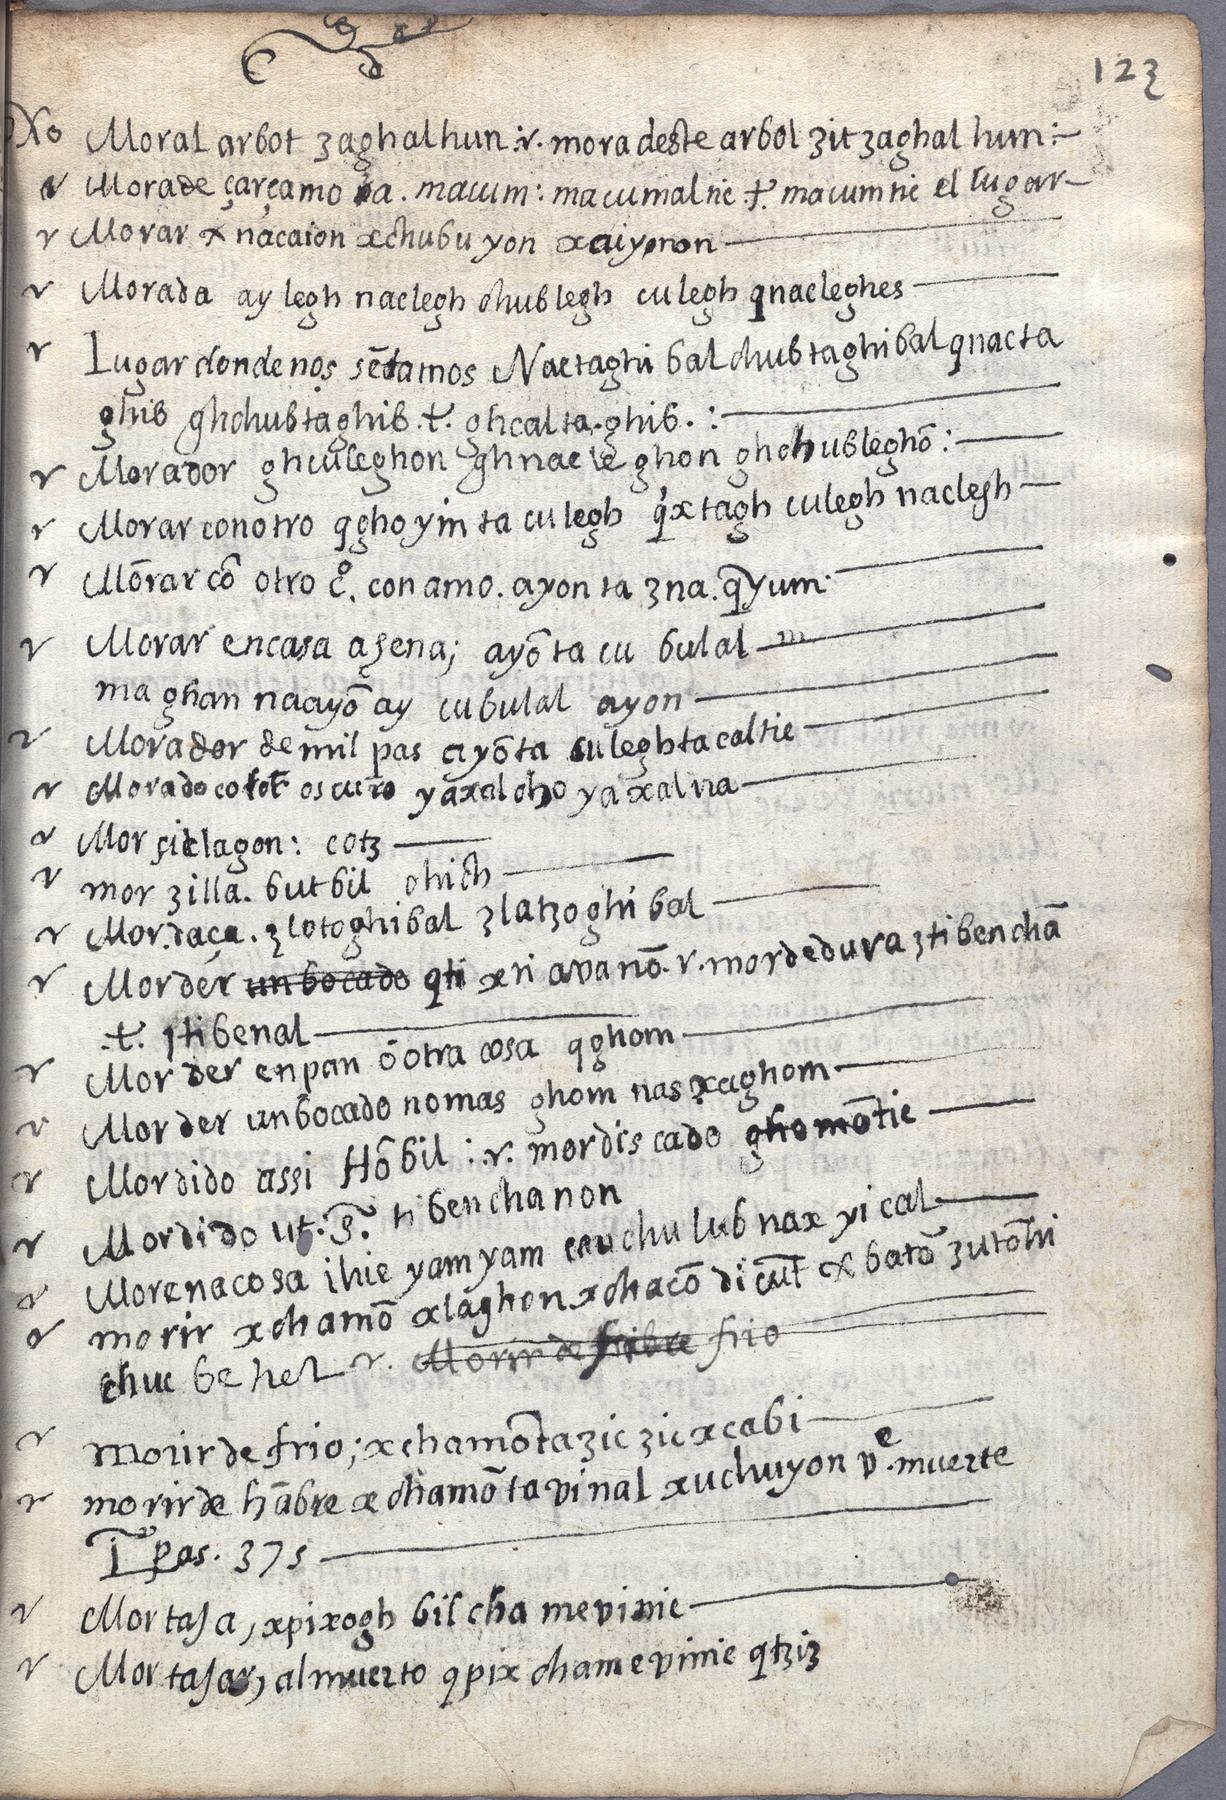 123
Moral arbot zaghalhun :r. mora deste arbol zit zaghal hun :
r Mora de çarçamora . macum : macumaltic .t. macumtic el lugar
r Morar x nacaion xchubuyon xaiyonon
r Morada ay legh naclegh chublegh culegh qnacleghes
r Lugar donde nos sētamos Nactaghi bal chubtaghibal qnacta
ghib ghchubtaghib .t. ghcalta.ghib. :
r Morador ghculeghon ghnacleghon ghchubleghō :
r Morar con otro qghoyin ta culegh qixtagh culegh naclegh
r Mōrar cō otro c̊. con amo. ayon ta zna. qyum
r Morar en casa agena; ayō ta cu bulal
ma ghan naayō ay cubulal ayon
r Morador de mil pas ayōta culeghtacaltic
r Morado color oscuro yaxal cho yaxalna
r Morsielagon : cotz
r mor zilla. butbil chich
r Mordaça. zlotoghibal zlatzoghi bal
r Morder un bocado qti xti avanō. r. mordedura ztibenchā
.t. ztibenal
r Morder en pan ō otra cosa qghom
r Morder un bocado nomas ghom nas xaghom
r Mordido assi Hōbil : .r. mordiscado ghomōtic
r Mordido ut. s̃. tibenchanon
r Morena cosa ihic yamyam cauchulub nax yical
r morir xchamō xlaghon xchacō di cut x batō zutōhi
chuc behel r. Morir de frio
r Morir de frio; xchamōta zic zic xcabi
r morir de hābre xchamō ta vinal xuchuyon ve. muerte
I pas. 375
r Mortaja, xpixogh bil cha mevinic
r Mortajar, al muerto qpix chamevinic qtziz